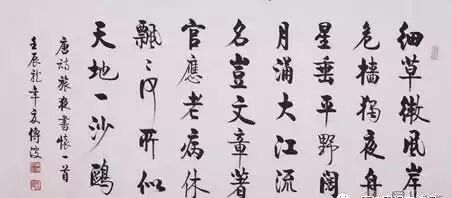 細草微風岸
危檣獨夜舟
星垂平野闊
月湧大江流
名豈文章著
官應老病休
飄〻何所似
天地一沙鷗
唐詩旅夜書懷一首
壬辰龍年